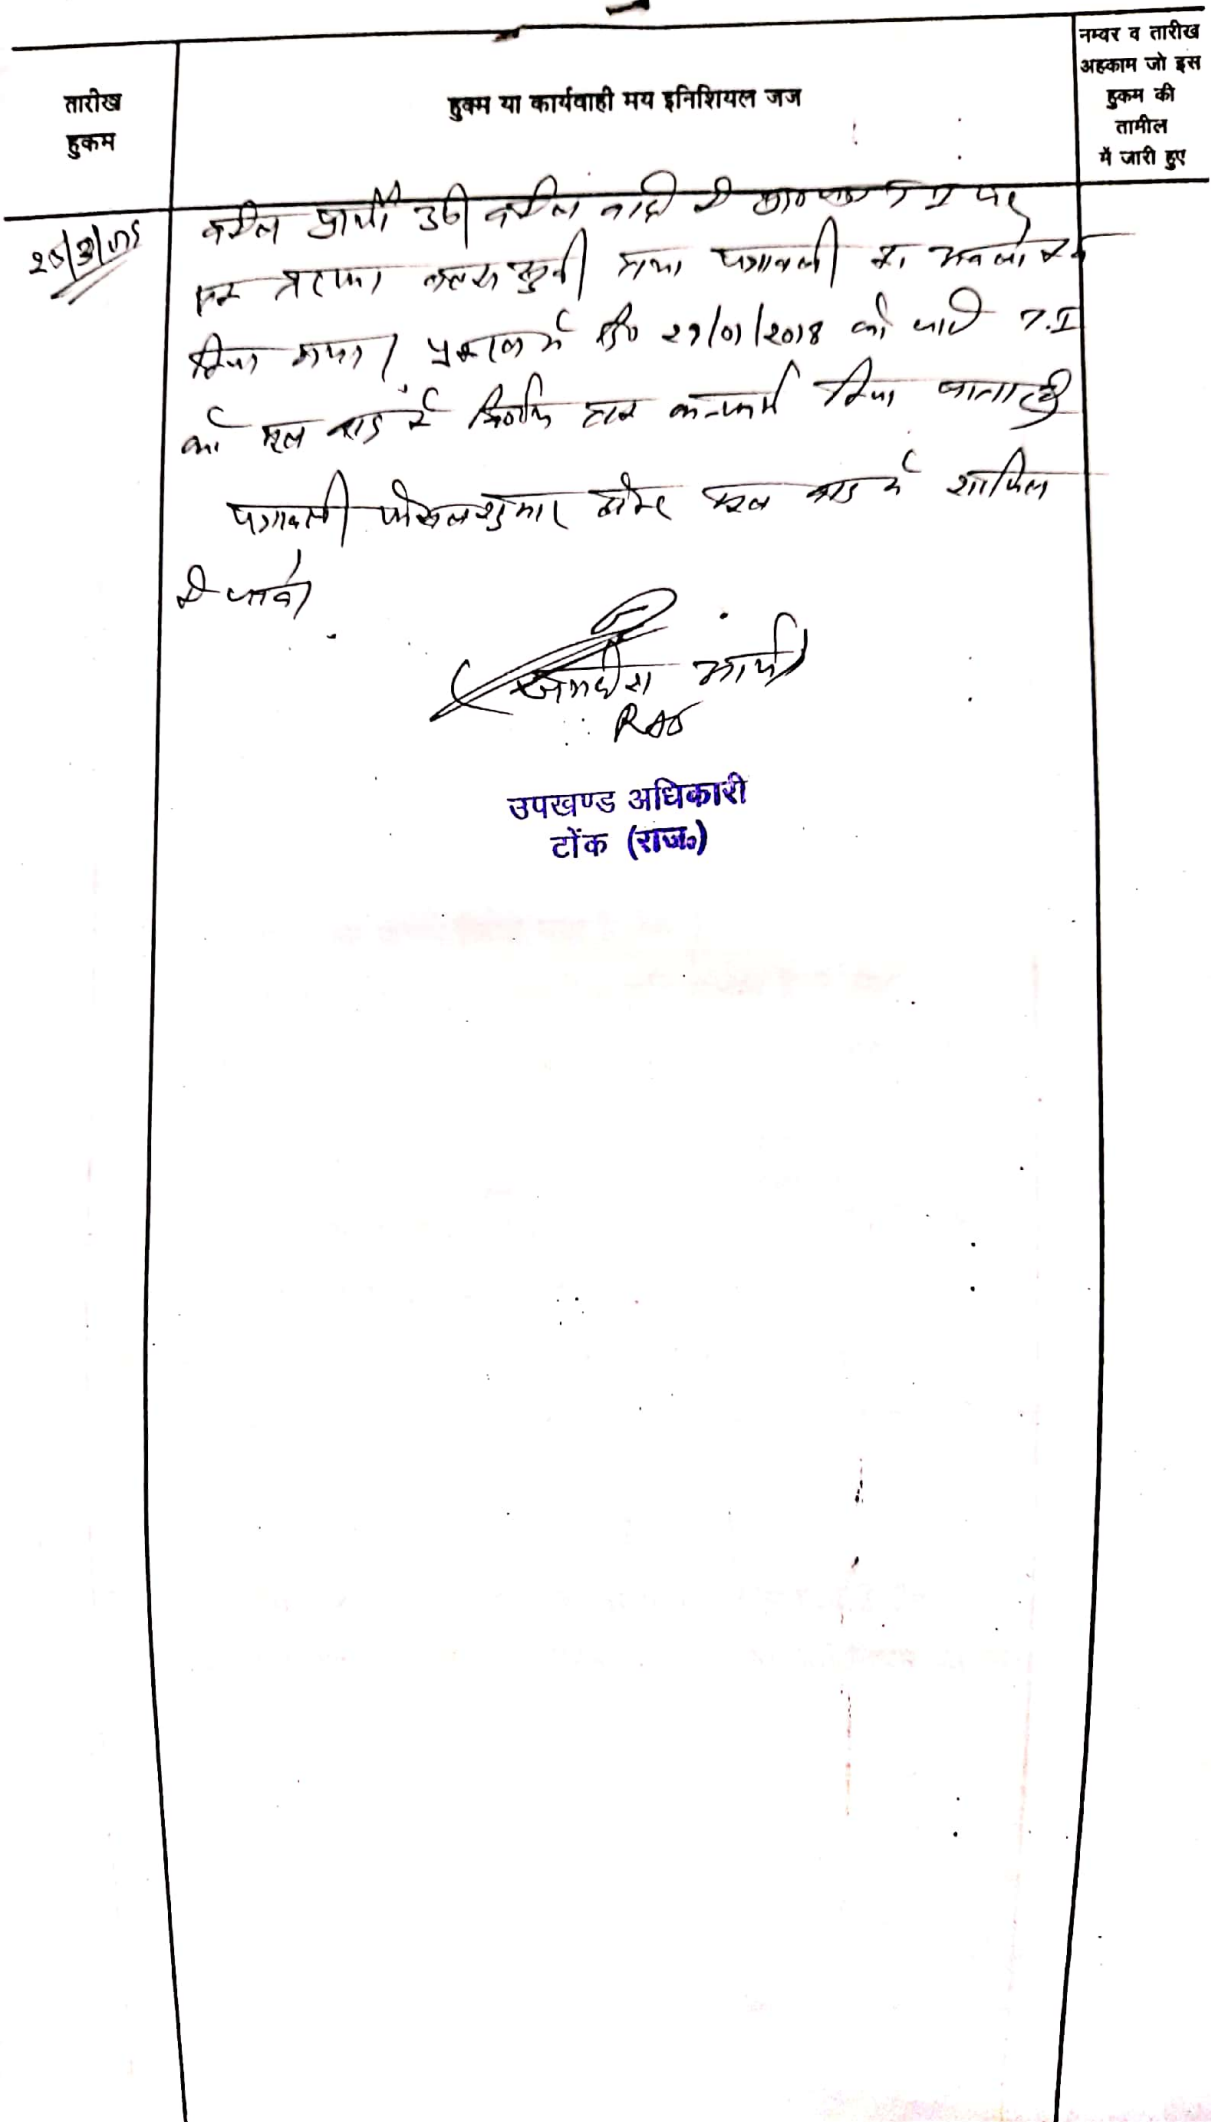 तारीख
हुकम
हुक्म या कार्यवाही मय इनिशियल जज
नम्वर व तारीख
अहकाम जो इस
हुकम की
तामील
में जारी हुए
वकील प्रार्थी उप० वकील वादी पर
एक तरफा बहस सुनी गया पत्रावली का अवलोकन
किया गया। प्रकरण में दि० 29/01/2018 को जारी T.I
को मूल वाद के निर्णय तक कन्फर्म किया जाता है।
पत्रावली फैसल शुमार होकर मूल वाद में शामिल
की जावे।
RAS
उपखण्ड अधिकारी
टोंक (राज०)